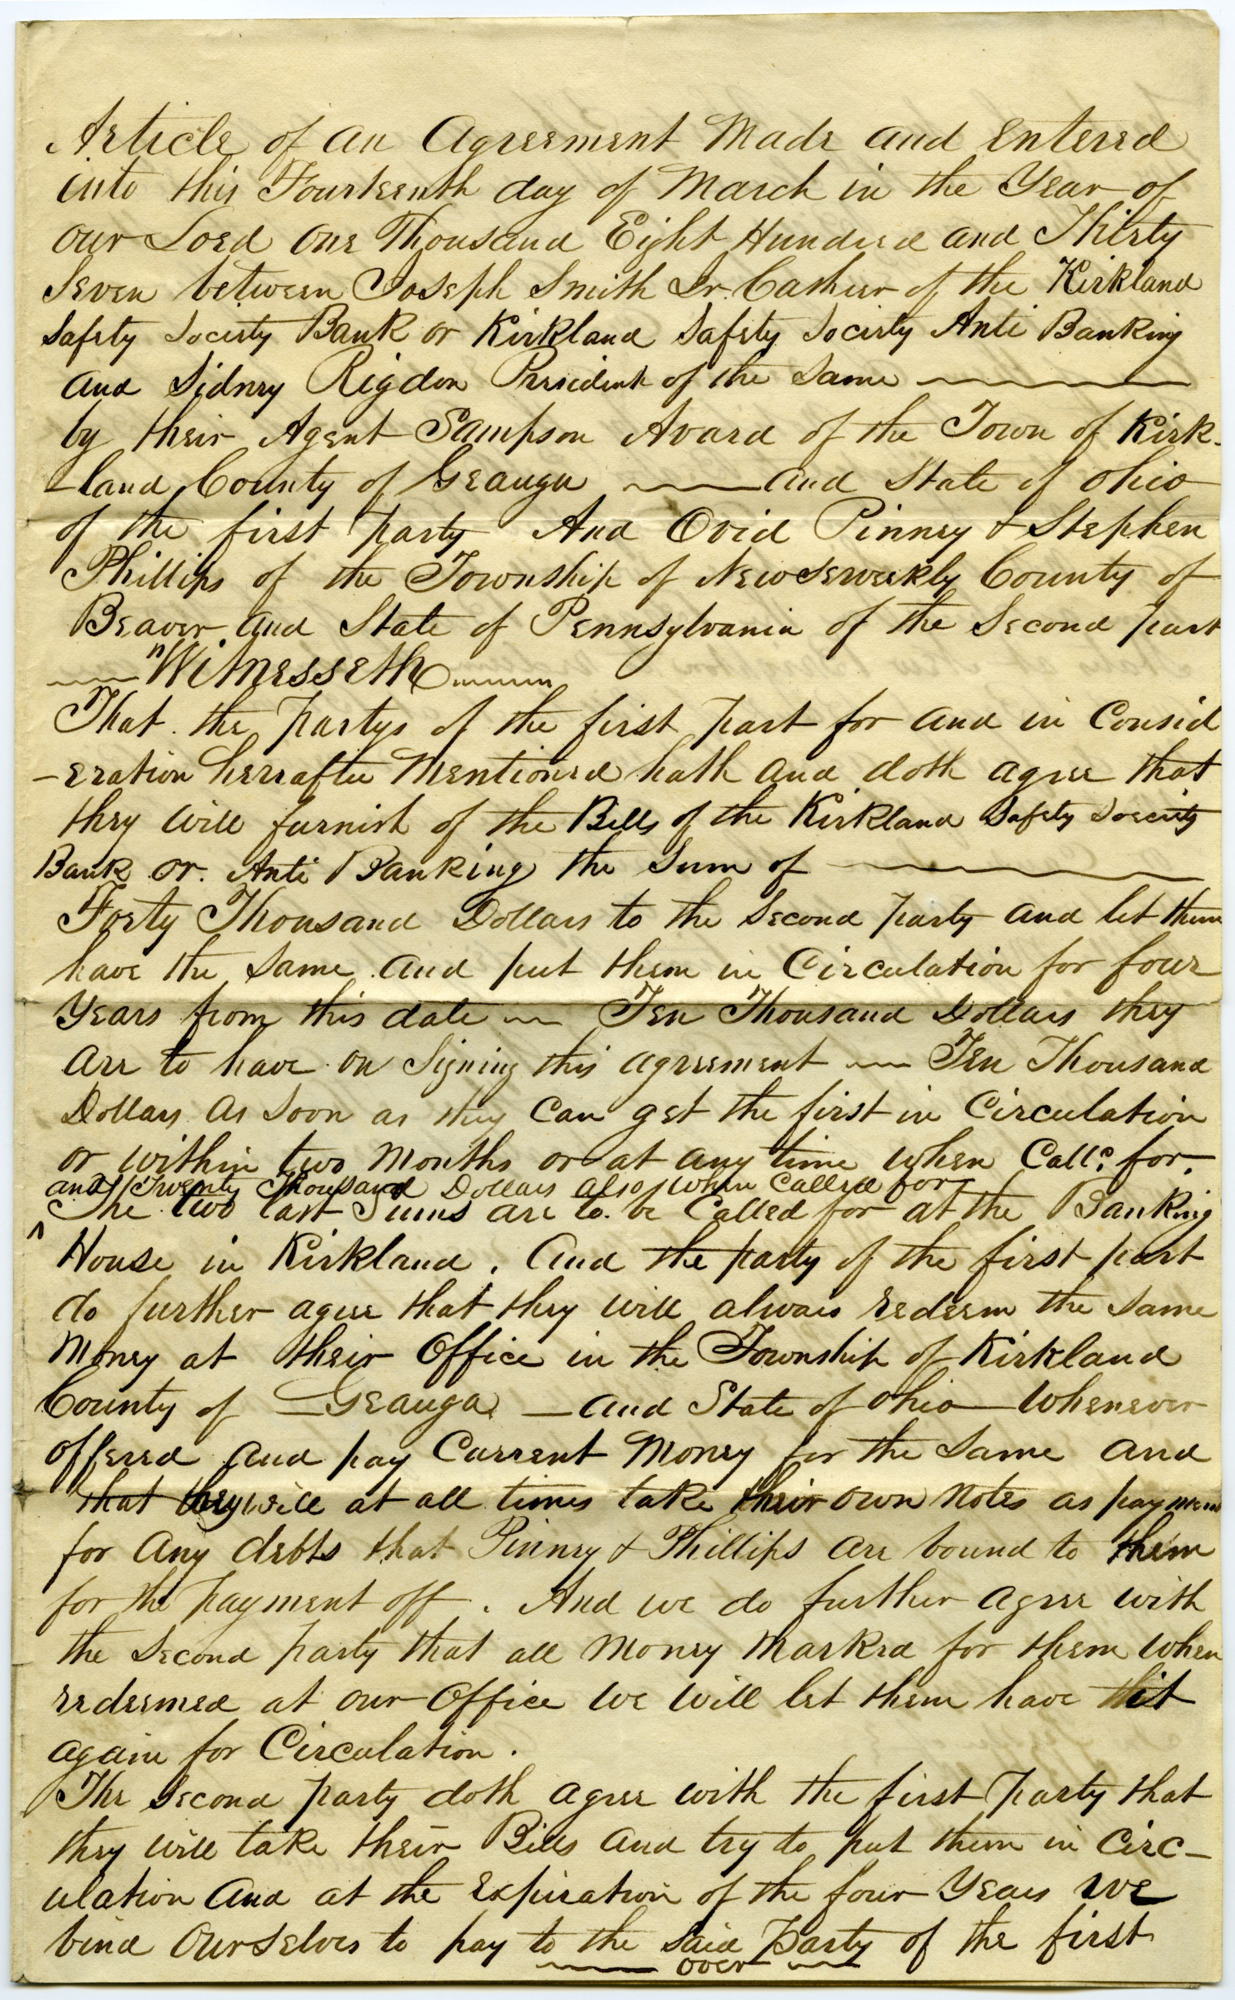 Article of an Agreement Made and Entered
into this Fourteenth day of March in the Year of
our Lord One Thousand Eight Hundred and Thirty
Seven between Joseph Smith Jr. Cashier of the Kirkland
Safety Society Bank or Kirkland Safety Society Anti Banking
and Sidney Rigdon President of the Same
by their Agent Sampson Avard of the Town of Kirk-
-land County of Geauga and State of Ohio
of the first party And Ovid Pinney & Stephen
Phillips of the Township of New Seweekly County of
Beaver and State of Pennsylvania of the Second part
"Witnesseth
That the partys of the first part for and in Consid
-eration hereafter Mentioned hath and doth agree that
they will furnish of the Bills of the Kirkland Safety Society
Bank or Anti Banking the Sum of
Forty Thousand Dollars to the Second party and let them
have the Same and put them in Circulation for four
Years from this date — Ten Thousand Dollars they
are to have on Signing this agreement — Ten Thousand
Dollars as Soon as they can get the first in Circulation
or within two Months or at any time when Calld for.
and Twenty Thousand Dollars also when called for
^ The two last Sums are to be Called for at the Banking
House in Kirkland. And the party of the first part
do further agree that they will always redeem the Same
Money at their Office in the Township of Kirkland
County of Geauga and State of Ohio Whenever
offered and pay Current Money for the Same and
that they will at all times take their own notes as payment
for any debts that Pinney & Phillips are bound to them
for the payment off. And we do further agree with
the Second party that all Money Marked for them when
redeemed at our Office we will let them have it
again for Circulation.
The Second party doth agree with the first Party that
they will take their Bills and try to put them in Circ-
ulation and at the Expiration of the four Years we
bind Ourselves to pay to the Said Party of the first
over